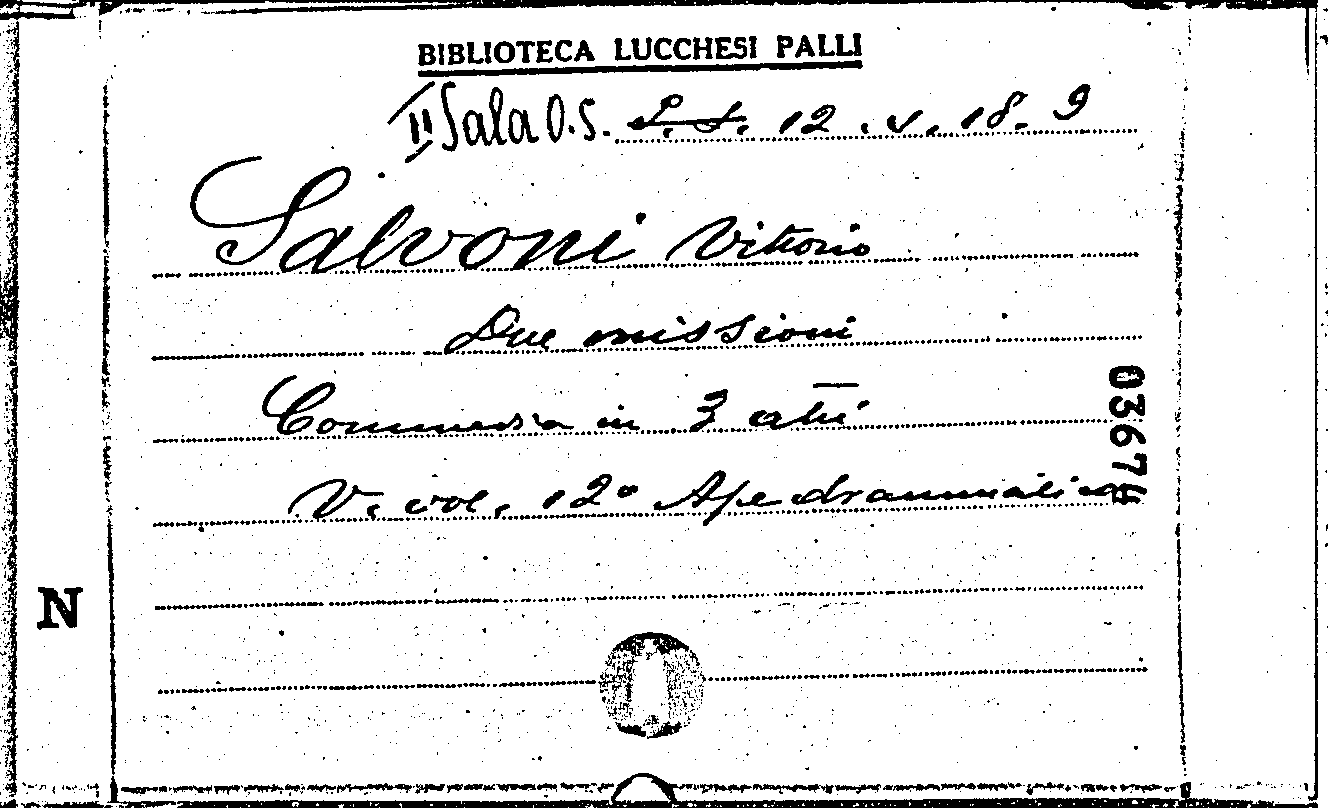 BIBLIOTECA LUCCHESI PALLI
II Sala O.S. S. S. 12 . V. 18. 9
Salvoni Vittorio
Due missioni
Commedia in 3 atti
V. vol. 12º Ape drammatica
03674
N